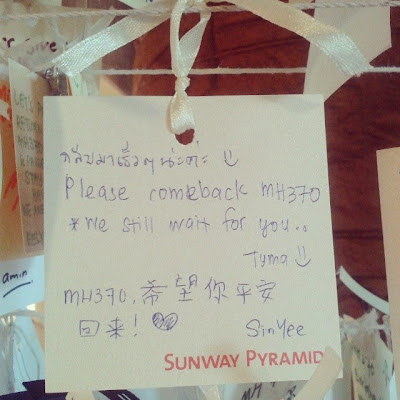 กลับมาเร็วๆ น่ะค่ะ
Please comeback MH370
*We still wait for you..
Tyma
MH370, 希望你平安
回来!
SinYee
SUNWAY PYRAMID
amin.